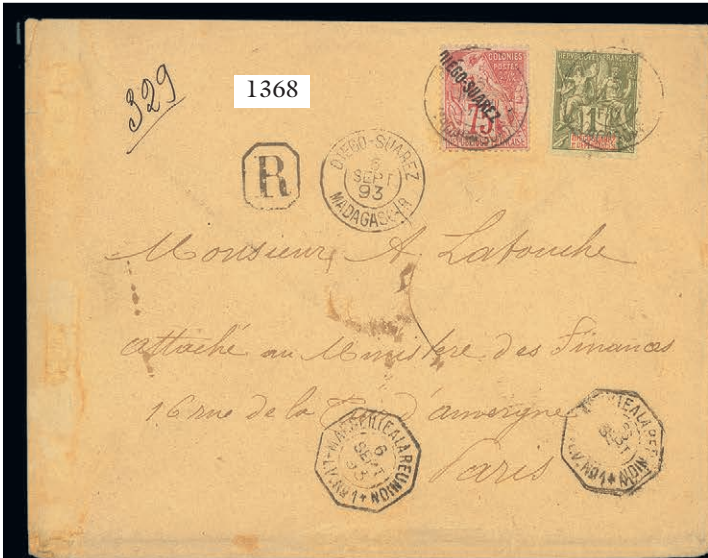 329
1368
COLONIES
POSTES
DIEGO-SUAREZ
75
REPUBLIQUE FRANÇAISE
1
R
DIEGO-SUAREZ
6
SEPT
93
MADAGASCAR
Monsieur A Latouche
attaché au Ministère des Finances
16 rue de la Tour d'auvergne
Paris
MARSEILLE A LA REUNION
6
SEPT
93
LV. Nº1
LV. Nº1